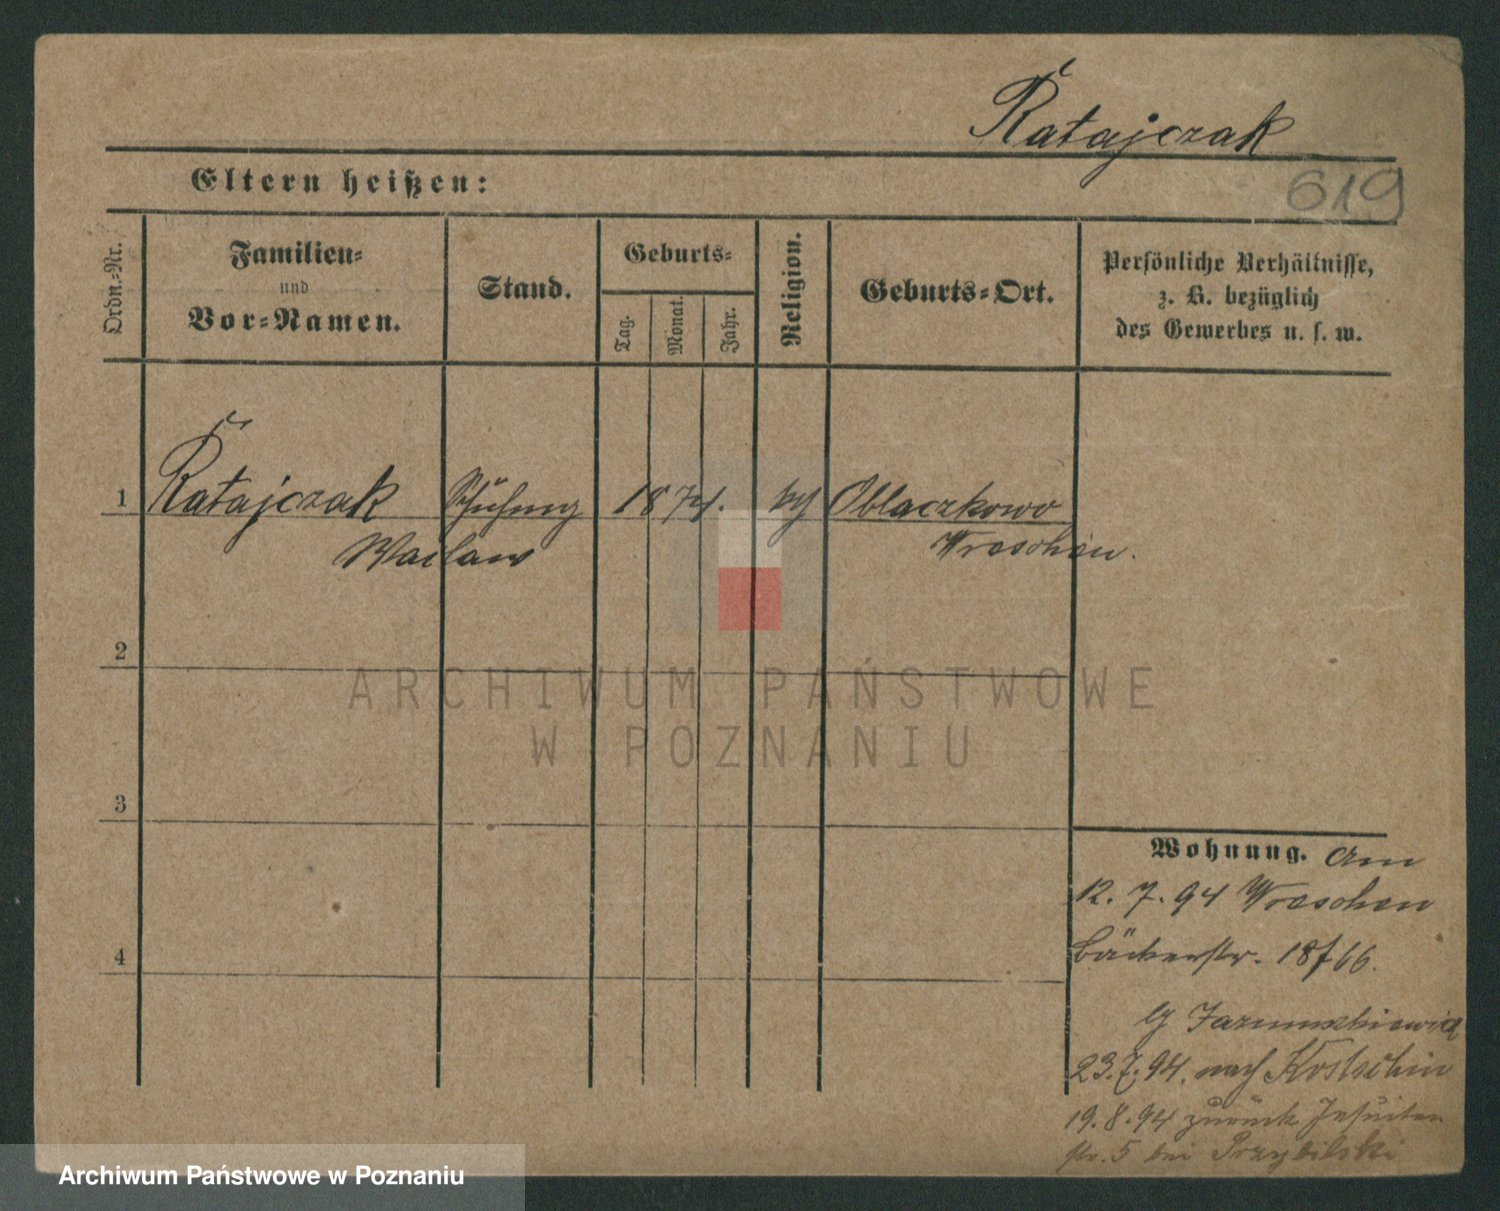 Ratajczak
Eltern heißen:
619
Ordn.-Nr.
Familien-
und
Vor-Namen.
Stand.
Geburts-
Tag.
Monat.
Jahr.
Religion.
Geburts-Ort.
Persönliche Verhältnisse,
z. B. bezüglich
des Gewerbes u. s. w.
1 Ratajczak 1874. Oblaczkowo
Waclaw Wreschen.
2
3
4
Wohnung. Am
12. 7. 94 Wreschen
Bäckerstr.
23.7.94. nach Kostschin
19.8.94 zurück Jesuiten
str. 5 bei Przybilski
ARCHIWUM PAŃSTWOWE
W POZNANIU
Archiwum Państwowe w Poznaniu